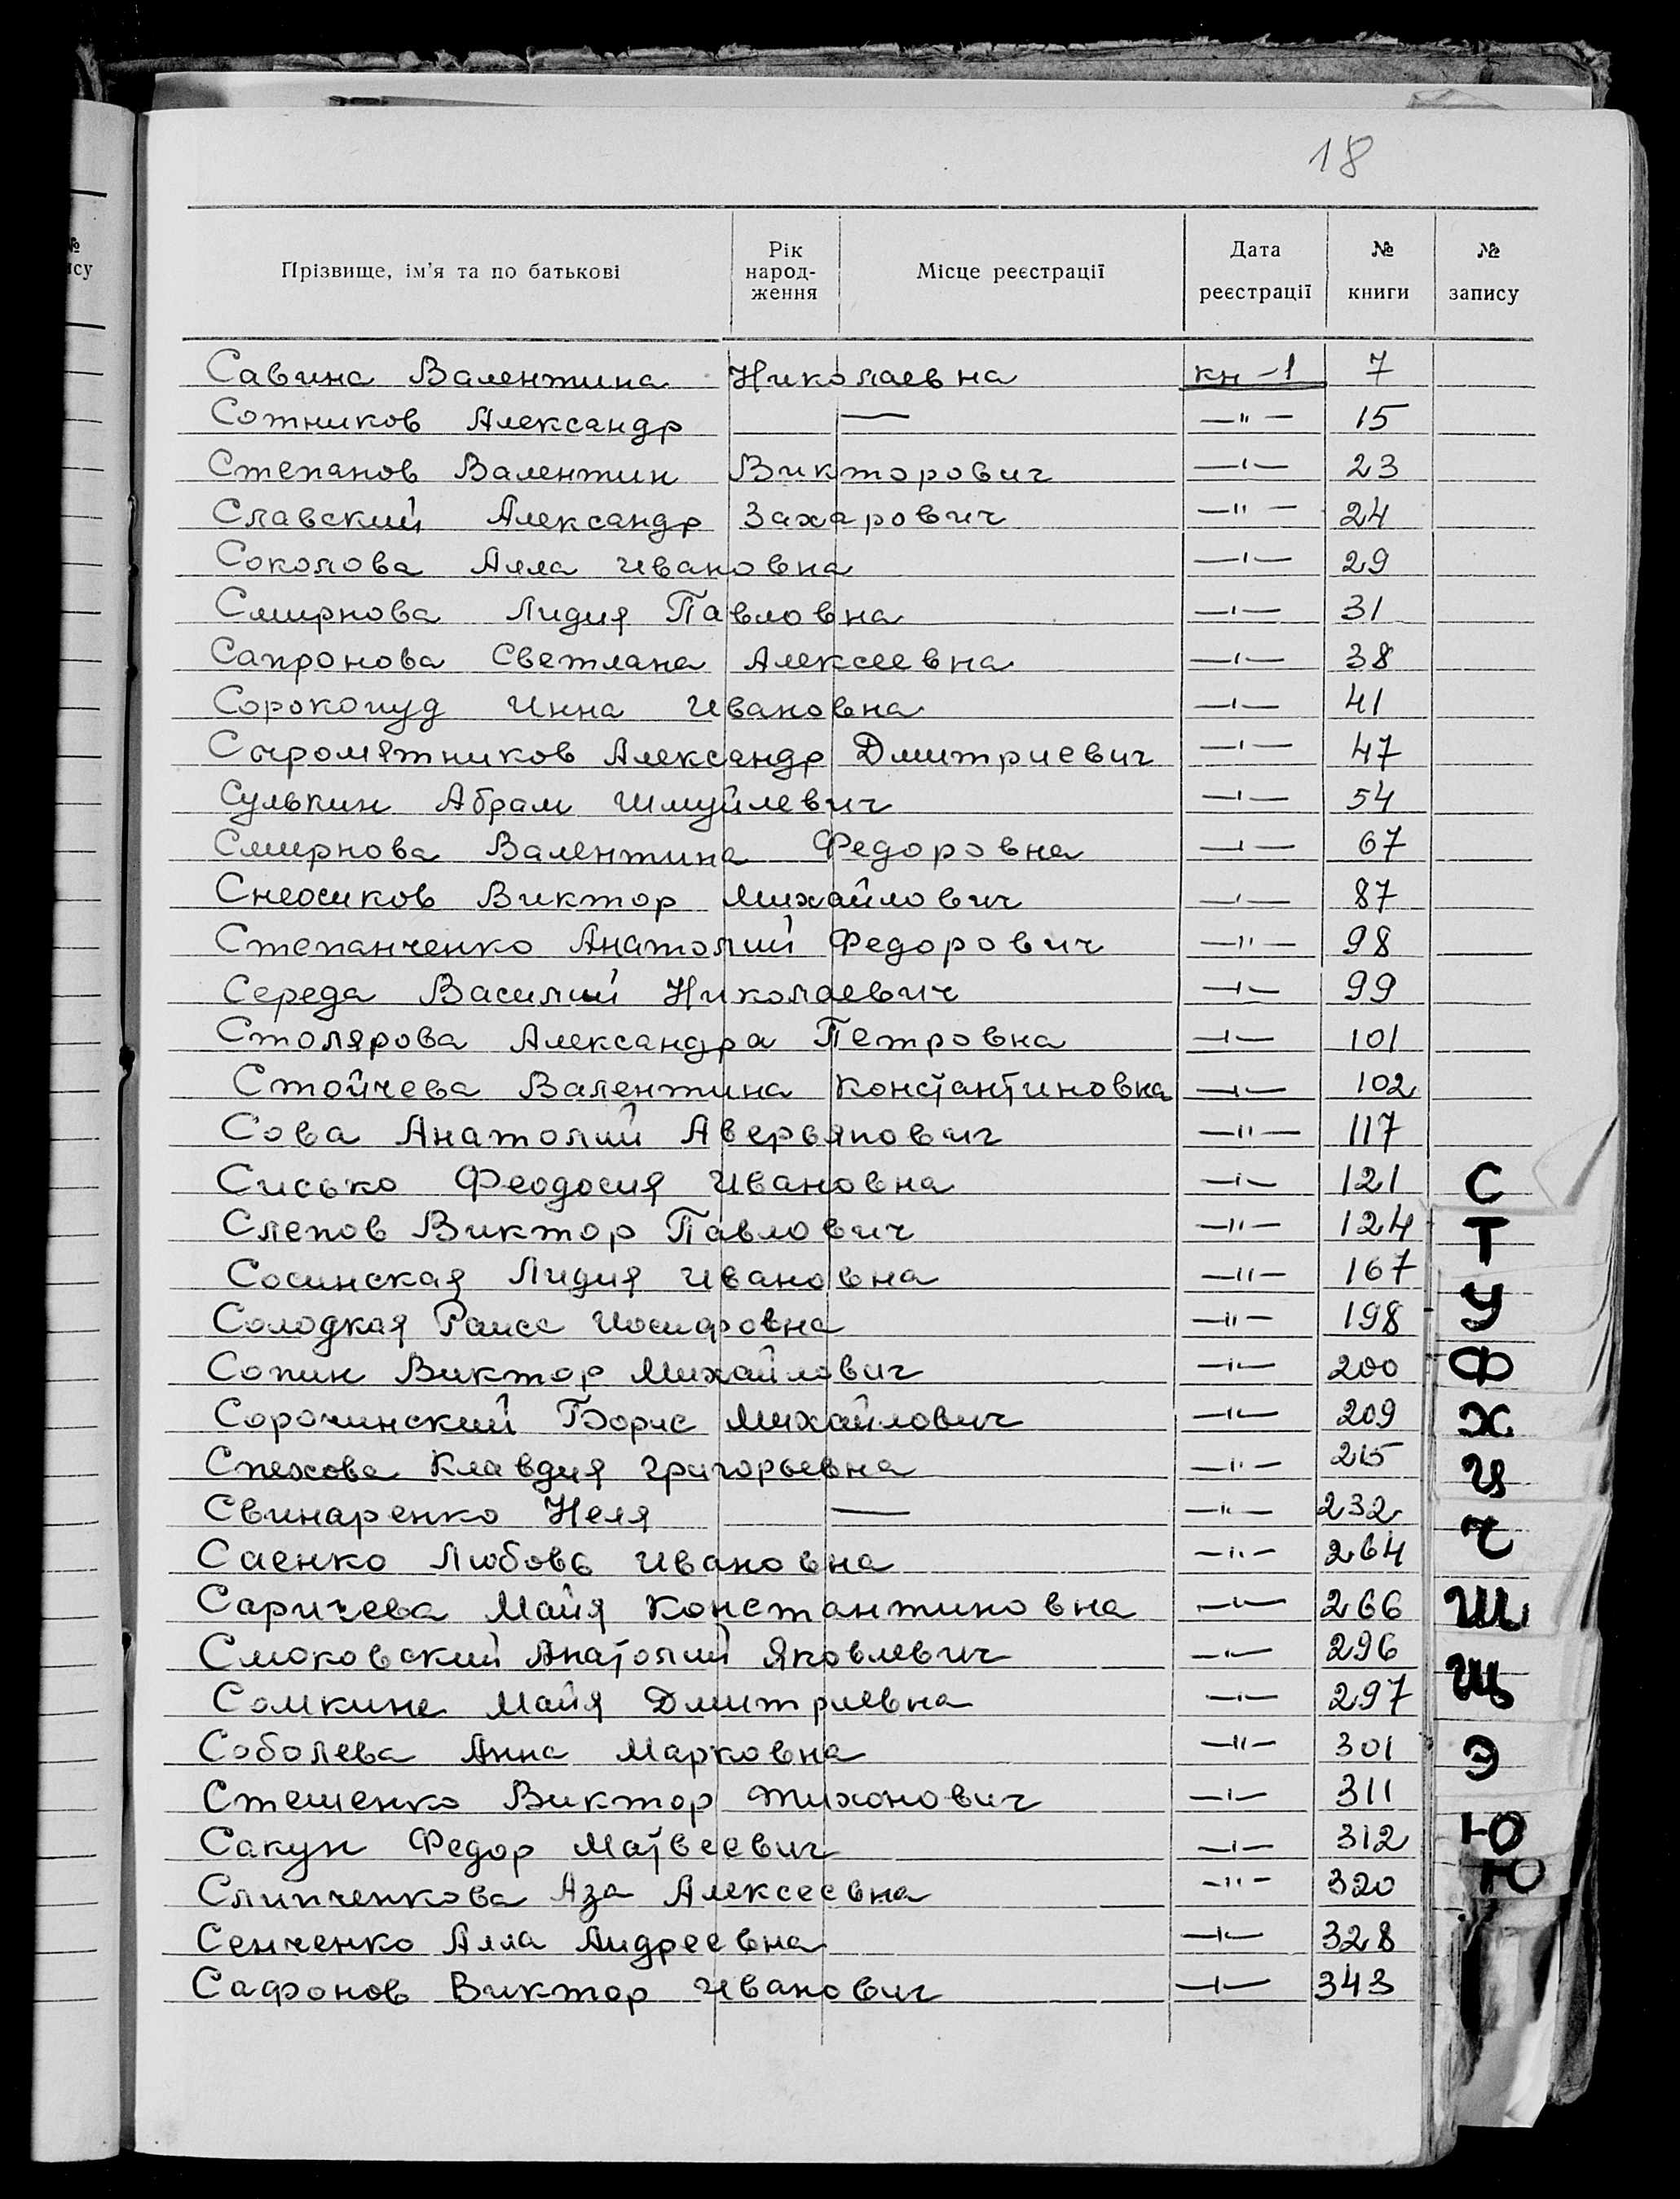 18
Прізвище, ім'я та по батькові Рік народ- ження Місце реєстрації Дата реєстрації № книги № запису
Савина Валентина Николаевна кн-1 7
Сотников Александр — —"— 15
Степанов Валентин Викторович —"— 23
Славский Александр Захарович —"— 24
Соколова Алла Ивановна —"— 29
Смирнова Лидия Павловна —"— 31
Сапронова Светлана Алексеевна —"— 38
Сорокопуд Инна Ивановна —"— 41
Сыромятников Александр Дмитриевич —"— 47
Сулькин Абрам Шмуйлевич —"— 54
Смирнова Валентина Федоровна —"— 67
Виктор Михайлович —"— 87
Степанченко Анатолий Федорович —"— 98
Середа Василий Николаевич —"— 99
Столярова Александра Петровна —"— 101
Стойчева Валентина Константиновна —"— 102
Сова Анатолий Аверьянович —"— 117
Сисько Феодосия Ивановна —"— 121
Слепов Виктор Павлович —"— 124
Сосинская Лидия Ивановна —"— 167
Солодкая Раиса Иосифовна —"— 198
Сопин Виктор Михайлович —"— 200
Сорочинский Борис Михайлович —"— 209
Спехова Клавдия Григорьевна —"— 215
Свинаренко Неля — —"— 232
Саенко Любовь Ивановна —"— 264
Саричева Майя Константиновна —"— 266
Смоковский Анатолий Яковлевич —"— 296
Сомкина Майя Дмитриевна —"— 297
Соболева Анна Марковна —"— 301
Стешенко Виктор Тихонович —"— 311
Сакун Федор Матвеевич —"— 312
Слипченкова Аза Алексеевна —"— 320
Сенченко Алла Андреевна —"— 328
Сафонов Виктор Иванович —"— 343
С
Т
У
Ф
Х
Ц
Ч
Ш
Щ
Э
Ю
Ю
№
ису